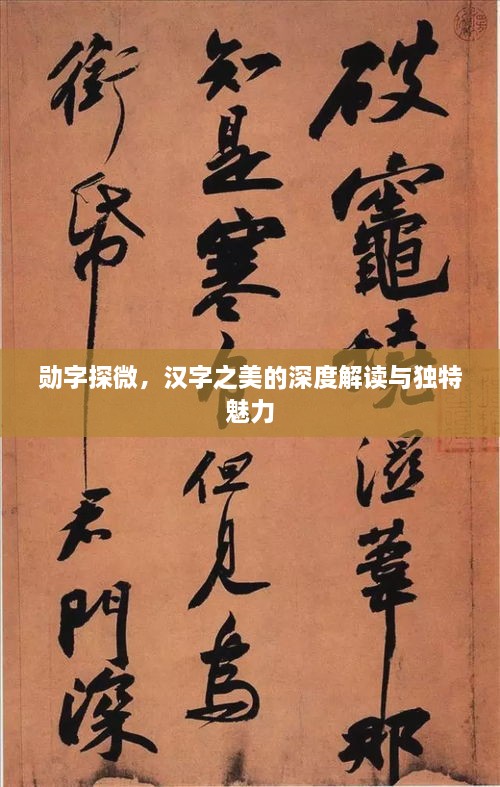 破竈燒濕葦那
知是寒食但見烏
銜帋君門深
勋字探微，汉字之美的深度解读与独特
魅力